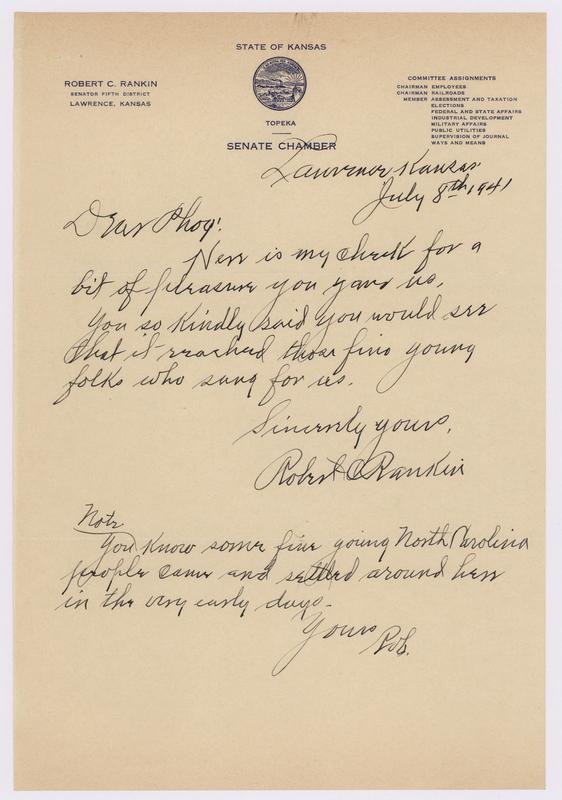 STATE OF KANSAS
ROBERT C. RANKIN
SENATOR FIFTH DISTRICT
LAWRENCE, KANSAS
TOPEKA
SENATE CHAMBER
COMMITTEE ASSIGNMENTS
CHAIRMAN EMPLOYEES
CHAIRMAN RAILROADS
MEMBER ASSESSMENT AND TAXATION
ELECTIONS
FEDERAL AND STATE AFFAIRS
INDUSTRIAL DEVELOPMENT
MILITARY AFFAIRS
PUBLIC UTILITIES
SUPERVISION OF JOURNAL
WAYS AND MEANS
Lawrence Kansas
July 8th, 1941
Dear Phog!
Here is my check for a
bit of pleasure you gave us.
You so kindly said you would see
that it reached those fine young
folks who sang for us.
Sincerely yours,
Robert C Rankin
Note
You know some fine young North Carolina
people came and settled around here
in the very early days.
Yours
Rob.